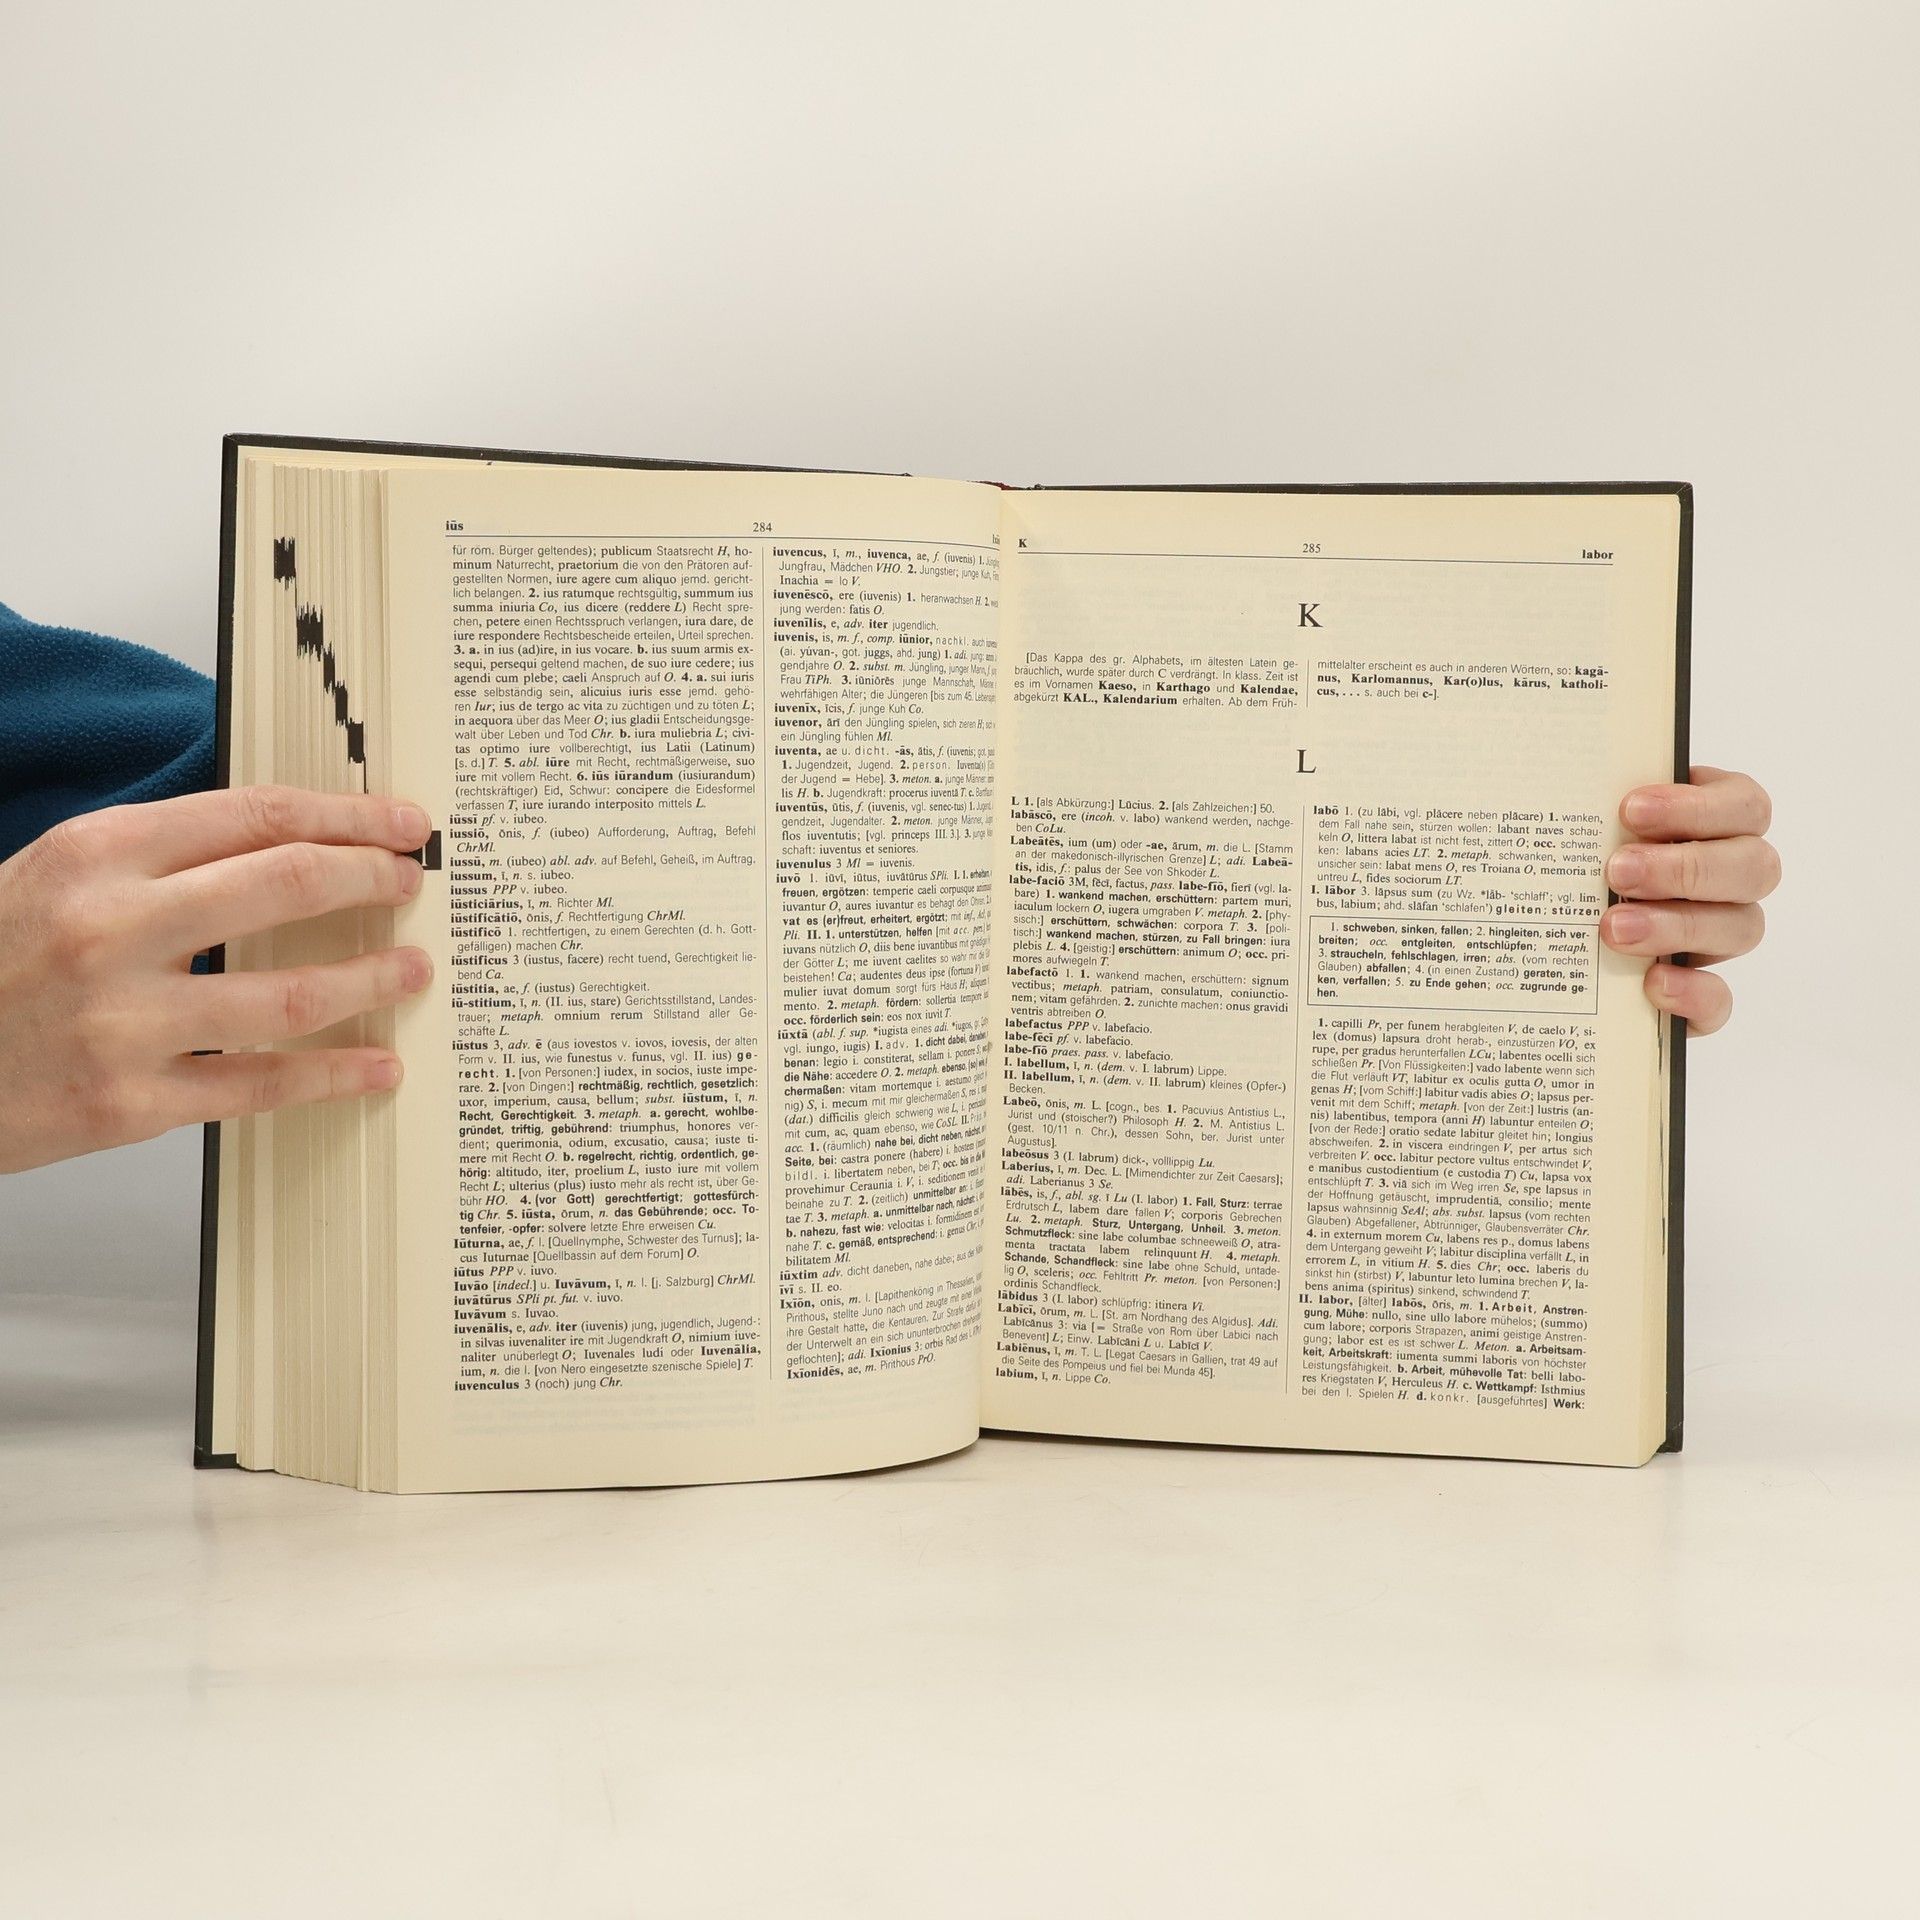 iūs
284
für röm. Bürger geltendes); publicum Staatsrecht H, ho-
minum Naturrecht, praetorium die von den Prätoren auf-
gestellten Normen, iure agere cum aliquo jemd. gericht-
lich belangen. 2. ius ratumque rechtsgültig, summum ius
summa iniuria Co, ius dicere (reddere L) Recht spre-
chen, petere einen Rechtsspruch verlangen, iura dare, de
iure respondere Rechtsbescheide erteilen, Urteil sprechen.
3. a. in ius (ad)ire, in ius vocare. b. ius suum armis ex-
sequi, persequi geltend machen, de suo iure cedere; ius
agendi cum plebe; caeli Anspruch auf O. 4. a. sui iuris
esse selbständig sein, alicuius iuris esse jemd. gehö-
ren Iur; ius de tergo ac vita zu züchtigen und zu töten L;
in aequora über das Meer O; ius gladii Entscheidungsge-
walt über Leben und Tod Chr. b. iura muliebria L; civi-
tas optimo iure vollberechtigt, ius Latii (Latinum)
[s. d.] T. 5. abl. iūre mit Recht, rechtmäßigerweise, suo
iure mit vollem Recht. 6. iūs iūrandum (iusiurandum)
(rechtskräftiger) Eid, Schwur: concipere die Eidesformel
verfassen T, iure iurando interposito mittels L.
iūssī pf. v. iubeo.
iussiō, ōnis, f. (iubeo) Aufforderung, Auftrag, Befehl
ChrMl.
iussū, m. (iubeo) abl. adv. auf Befehl, Geheiß, im Auftrag.
iussum, ī, n. s. iubeo.
iussus PPP v. iubeo.
iūsticiārius, ī, m. Richter Ml.
iūstificātiō, ōnis, f. Rechtfertigung ChrMl.
iūstificō 1. rechtfertigen, zu einem Gerechten (d. h. Gott-
gefälligen) machen Chr.
iūstificus 3 (iustus, facere) recht tuend, Gerechtigkeit lie-
bend Ca.
iūstitia, ae, f. (iustus) Gerechtigkeit.
iū-stitium, ī, n. (II. ius, stare) Gerichtsstillstand, Landes-
trauer; metaph. omnium rerum Stillstand aller Ge-
schäfte L.
iūstus 3, adv. ē (aus iovestos v. iovos, iovesis, der alten
Form v. II. ius, wie funestus v. funus, vgl. II. ius) ge-
recht. 1. [von Personen:] iudex, in socios, iuste impe-
rare. 2. [von Dingen:] rechtmäßig, rechtlich, gesetzlich:
uxor, imperium, causa, bellum; subst. iūstum, ī, n.
Recht, Gerechtigkeit. 3. metaph. a. gerecht, wohlbe-
gründet, triftig, gebührend: triumphus, honores ver-
dient; querimonia, odium, excusatio, causa; iuste ti-
mere mit Recht O. b. regelrecht, richtig, ordentlich, ge-
hörig: altitudo, iter, proelium L, iusto iure mit vollem
Recht L; ulterius (plus) iusto mehr als recht ist, über Ge-
bühr HO. 4. (vor Gott) gerechtfertigt; gottesfürch-
tig Chr. 5. iūsta, ōrum, n. das Gebührende; occ. To-
tenfeier, -opfer: solvere letzte Ehre erweisen Cu.
Iūturna, ae, f. l. [Quellnymphe, Schwester des Turnus]; la-
cus Iuturnae [Quellbassin auf dem Forum] O.
iūtus PPP v. iuvo.
Iuvāo [indecl.] u. Iuvāvum, ī, n. l. [j. Salzburg] ChrMl.
iuvātūrus SPli pt. fut. v. iuvo.
Iuvāvum s. Iuvao.
iuvenālis, e, adv. iter (iuvenis) jung, jugendlich, Jugend-:
in silvas iuvenaliter ire mit Jugendkraft O, nimium iuve-
naliter unüberlegt O; Iuvenales ludi oder Iuvenālia,
ium, n. die I. [von Nero eingesetzte szenische Spiele] T.
iuvenculus 3 (noch) jung Chr.
iuvencus, ī, m., iuvenca, ae, f. (iuvenis) 1.
Jungfrau, Mädchen VHO. 2. Jungstier; junge Kuh,
Inachia = Io V.
iuvenēscō, ere (iuvenis) 1. heranwachsen H. 2.
jung werden: fatis O.
iuvenīlis, e, adv. iter jugendlich.
iuvenis, is, m. f., comp. iūnior, nachkl. auch
(ai. yúvan-, got. juggs, ahd. jung) 1. adi. jung:
gendjahre O. 2. subst. m. Jüngling, junger Mann, f.
Frau TiPh. 3. iūniōrēs junge Mannschaft,
wehrfähigen Alter; die Jüngeren [bis zum 45.
iuvenīx, īcis, f. junge Kuh Co.
iuvenor, ārī den Jüngling spielen, sich zieren H;
ein Jüngling fühlen Ml.
iuventa, ae u. dicht. -ās, ātis, f. (iuvenis; got.
1. Jugendzeit, Jugend. 2. person. Iuventa(s)
der Jugend = Hebe]. 3. meton. a. junge Männer:
lis H. b. Jugendkraft: procerus iuventā T. c.
iuventūs, ūtis, f. (iuvenis, vgl. senec-tus) 1.
gendzeit, Jugendalter. 2. meton. junge Männer,
flos iuventutis; [vgl. princeps III. 3.]. 3. junge
schaft: iuventus et seniores.
iuvenulus 3 Ml = iuvenis.
iuvō 1. iūvī, iūtus, iuvātūrus SPli. I. 1. erheitern,
freuen, ergötzen: temperie caeli corpusque
iuvantur O, aures iuvantur es behagt den Ohren.
vat es (er)freut, erheitert, ergötzt; mit inf.,
Pli. II. 1. unterstützen, helfen [mit acc. pers.]
iuvans nützlich O, diis bene iuvantibus mit
der Götter L; me iuvent caelites so wahr mir die
beistehen! Ca; audentes deus ipse (fortuna V)
mulier iuvat domum sorgt fürs Haus H;
mento. 2. metaph. fördern: sollertia tempore
occ. förderlich sein: eos nox iuvit T.
iūxtā (abl. f. sup. *iugista eines adi. *iugos,
vgl. iungo, iugis) I. adv. 1. dicht dabei,
benan: legio i. constiterat, sellam i. ponere S;
die Nähe: accedere O. 2. metaph. ebenso,
chermaßen: vitam mortemque i. aestumo
nig) S, i. mecum mit mir gleichermaßen S,
(dat.) difficilis gleich schwierig wie L, i.
mit cum, ac, quam ebenso, wie CoSL. II.
acc. 1. (räumlich) nahe bei, dicht neben,
Seite, bei: castra ponere (habere) i.
bildl. i. libertatem neben, bei T; occ.
provehimur Ceraunia i. V, i. seditionem
beinahe zu T. 2. (zeitlich) unmittelbar an:
tae T. 3. metaph. a. unmittelbar nach,
b. nahezu, fast wie: velocitas i. formidinem
nahe T. c. gemäß, entsprechend: i. genus
bilitatem Ml.
iūxtim adv. dicht daneben, nahe dabei;
īvī s. II. eo.
Ixīōn, onis, m. l. [Lapithenkönig in Thessalien,
Pirithous, stellte Juno nach und zeugte mit einer
ihre Gestalt hatte, die Kentauren. Zur Strafe
der Unterwelt an ein sich ununterbrochen
geflochten]; adi. Ixīonius 3: orbis Rad des I.
Ixionidēs, ae, m. Pirithous PrO.
K
285
labor
K
[Das Kappa des gr. Alphabets, im ältesten Latein ge-
bräuchlich, wurde später durch C verdrängt. In klass. Zeit ist
es im Vornamen Kaeso, in Karthago und Kalendae,
abgekürzt KAL., Kalendarium erhalten. Ab dem Früh-
mittelalter erscheint es auch in anderen Wörtern, so: kagā-
nus, Karlomannus, Kar(o)lus, kārus, katholi-
cus, . . . s. auch bei c-].
L
L 1. [als Abkürzung:] Lūcius. 2. [als Zahlzeichen:] 50.
labāscō, ere (incoh. v. labo) wankend werden, nachge-
ben CoLu.
Labeātēs, ium (um) oder -ae, ārum, m. die L. [Stamm
an der makedonisch-illyrischen Grenze] L; adi. Labeā-
tis, idis, f.: palus der See von Shkodër L.
labe-faciō 3M, fēcī, factus, pass. labe-fīō, fierī (vgl. la-
bare) 1. wankend machen, erschüttern: partem muri,
iaculum lockern O, iugera umgraben V. metaph. 2. [phy-
sisch:] erschüttern, schwächen: corpora T. 3. [poli-
tisch:] wankend machen, stürzen, zu Fall bringen: iura
plebis L. 4. [geistig:] erschüttern: animum O; occ. pri-
mores aufwiegeln T.
labefactō 1. 1. wankend machen, erschüttern: signum
vectibus; metaph. patriam, consulatum, coniunctio-
nem; vitam gefährden. 2. zunichte machen: onus gravidi
ventris abtreiben O.
labefactus PPP v. labefacio.
labe-fēcī pf. v. labefacio.
labe-fīō praes. pass. v. labefacio.
I. labellum, ī, n. (dem. v. I. labrum) Lippe.
II. labellum, ī, n. (dem. v. II. labrum) kleines (Opfer-)
Becken.
Labeō, ōnis, m. L. [cogn., bes. 1. Pacuvius Antistius L.,
Jurist und (stoischer?) Philosoph H. 2. M. Antistius L.
(gest. 10/11 n. Chr.), dessen Sohn, ber. Jurist unter
Augustus].
labeōsus 3 (I. labrum) dick-, volllippig Lu.
Laberius, ī, m. Dec. L. [Mimendichter zur Zeit Caesars];
adi. Laberianus 3 Se.
lābēs, is, f., abl. sg. ī Lu (I. labor) 1. Fall, Sturz: terrae
Erdrutsch L, labem dare fallen V; corporis Gebrechen
Lu. 2. metaph. Sturz, Untergang, Unheil. 3. meton.
Schmutzfleck: sine labe columbae schneeweiß O, atra-
menta tractata labem relinquunt H. 4. metaph.
Schande, Schandfleck: sine labe ohne Schuld, untade-
lig O, sceleris; occ. Fehltritt Pr. meton. [von Personen:]
ordinis Schandfleck.
lābidus 3 (I. labor) schlüpfrig: itinera Vi.
Labīcī, ōrum, m. L. [St. am Nordhang des Algidus]. Adi.
Labīcānus 3: via [= Straße von Rom über Labici nach
Benevent] L; Einw. Labīcāni L u. Labīcī V.
Labiēnus, ī, m. T. L. [Legat Caesars in Gallien, trat 49 auf
die Seite des Pompeius und fiel bei Munda 45].
labium, ī, n. Lippe Co.
labō 1. (zu lābi, vgl. plācere neben plăcare) 1. wanken,
dem Fall nahe sein, stürzen wollen: labant naves schau-
keln O, littera labat ist nicht fest, zittert O; occ. schwan-
ken: labans acies LT. 2. metaph. schwanken, wanken,
unsicher sein: labat mens O, res Troiana O, memoria ist
untreu L, fides sociorum LT.
I. lābor 3. lāpsus sum (zu Wz. *lāb- 'schlaff'; vgl. lim-
bus, labium; ahd. slāfan 'schlafen') gleiten; stürzen
1. schweben, sinken, fallen; 2. hingleiten, sich ver-
breiten; occ. entgleiten, entschlüpfen; metaph.
3. straucheln, fehlschlagen, irren; abs. (vom rechten
Glauben) abfallen; 4. (in einen Zustand) geraten, sin-
ken, verfallen; 5. zu Ende gehen; occ. zugrunde ge-
hen.
1. capilli Pr, per funem herabgleiten V, de caelo V, si-
lex (domus) lapsura droht herab-, einzustürzen VO, ex
rupe, per gradus herunterfallen LCu; labentes ocelli sich
schließen Pr. [Von Flüssigkeiten:] vado labente wenn sich
die Flut verläuft VT, labitur ex oculis gutta O, umor in
genas H; [vom Schiff:] labitur vadis abies O; lapsus per-
venit mit dem Schiff; metaph. [von der Zeit:] lustris (an-
nis) labentibus, tempora (anni H) labuntur enteilen O;
[von der Rede:] oratio sedate labitur gleitet hin; longius
abschweifen. 2. in viscera eindringen V, per artus sich
verbreiten V. occ. labitur pectore vultus entschwindet V,
e manibus custodientium (e custodia T) Cu, lapsa vox
entschlüpft T. 3. viā sich im Weg irren Se, spe lapsus in
der Hoffnung getäuscht, imprudentiā, consilio; mente
lapsus wahnsinnig SeAl; abs. subst. lapsus (vom rechten
Glauben) Abgefallener, Abtrünniger, Glaubensverräter Chr.
4. in externum morem Cu, labens res p., domus labens
dem Untergang geweiht V; labitur disciplina verfällt L, in
errorem L, in vitium H. 5. dies Chr; occ. laberis du
sinkst hin (stirbst) V, labuntur leto lumina brechen V, la-
bens anima (spiritus) sinkend, schwindend T.
II. labor, [älter] labōs, ōris, m. 1. Arbeit, Anstren-
gung, Mühe: nullo, sine ullo labore mühelos; (summo)
cum labore; corporis Strapazen, animi geistige Anstren-
gung; labor est es ist schwer L. Meton. a. Arbeitsam-
keit, Arbeitskraft: iumenta summi laboris von höchster
Leistungsfähigkeit. b. Arbeit, mühevolle Tat: belli labo-
res Kriegstaten V, Herculeus H. c. Wettkampf: Isthmius
bei den I. Spielen H. d. konkr. [ausgeführtes] Werk: